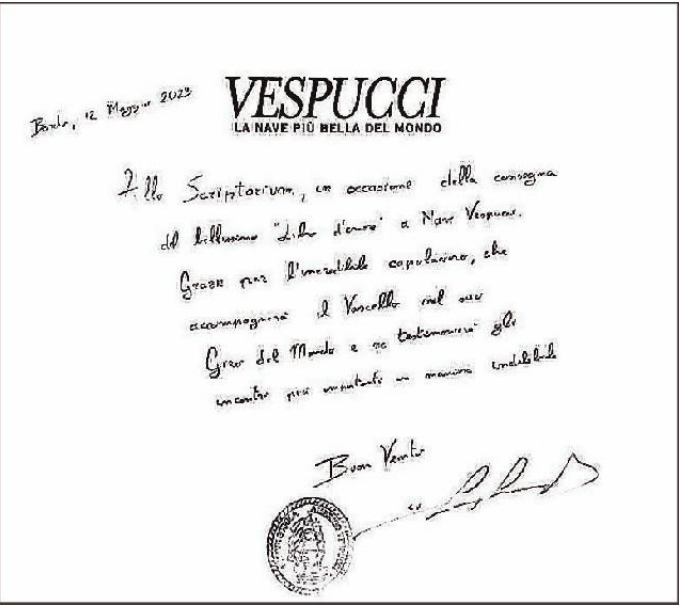 VESPUCCI
LA NAVE PIÙ BELLA DEL MONDO
Bordo, 12 Maggio 2023
Allo Scriptorium, in occasione della consegna
del bellissimo "Libro d'onore" a Nave Vespucci.
Grazie per l'incredibile capolavoro, che
accompagnerà il Vascello nel suo
Giro del Mondo e ne testimonierà gli
incontri più importanti in maniera indelebile
Buon Vento